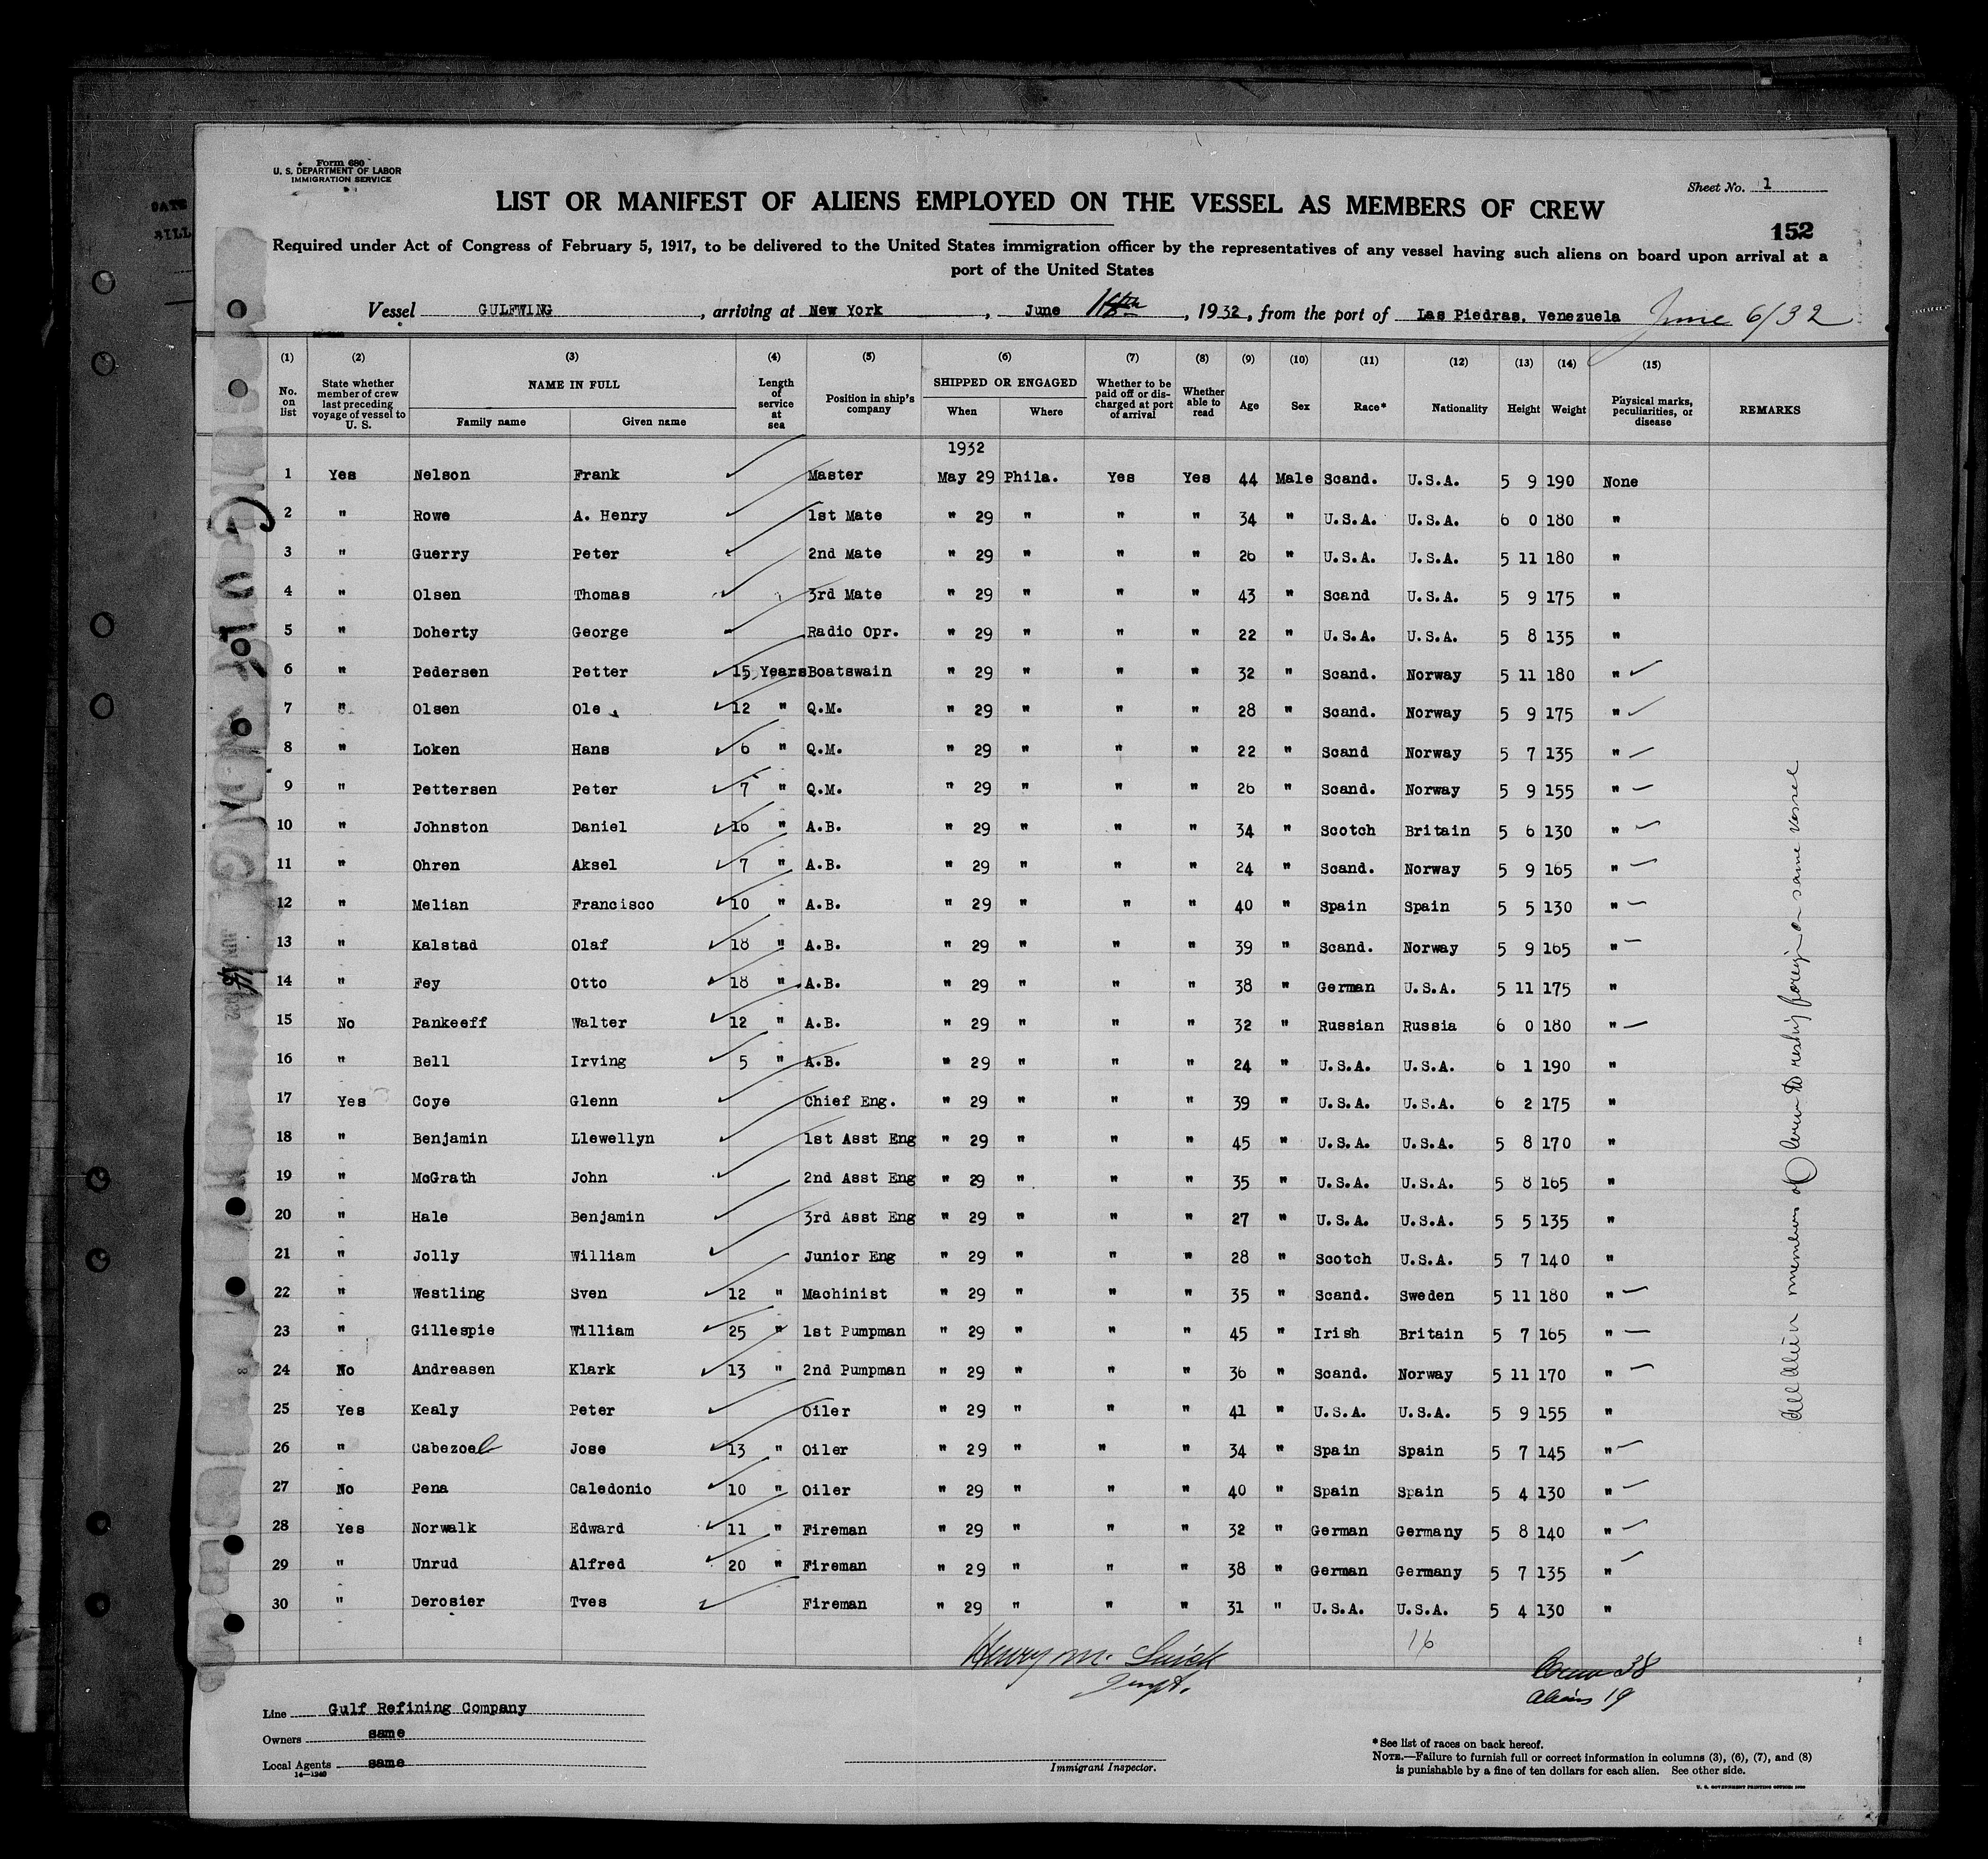 Form 680
U. S. DEPARTMENT OF LABOR
IMMIGRATION SERVICE
Sheet No. 1
LIST OR MANIFEST OF ALIENS EMPLOYED ON THE VESSEL AS MEMBERS OF CREW
152
Required under Act of Congress of February 5, 1917, to be delivered to the United States immigration officer by the representatives of any vessel having such aliens on board upon arrival at a
port of the United States
Vessel GULFWING, arriving at New York, June, 1932, from the port of Las Piedras, Venezuela June 6/32
(1) (2) (3) (4) (5) (6) (7) (8) (9) (10) (11) (12) (13) (14) (15)
No. on list State whether member of crew last preceding voyage of vessel to U. S. NAME IN FULL Family name Given name Length of service at sea Position in ship's company SHIPPED OR ENGAGED When Where Whether to be paid off or discharged at port of arrival Whether able to read Age Sex Race* Nationality Height Weight Physical marks, peculiarities, or disease REMARKS
1932
1 Yes Nelson Frank Master May 29 Phila. Yes Yes 44 Male Scand. U.S.A. 5 9 190 None
2 " Rowe A. Henry 1st Mate " 29 " " " 34 " U.S.A. U.S.A. 6 0 180 "
3 " Guerry Peter 2nd Mate " 29 " " " 26 " U.S.A. U.S.A. 5 11 180 "
4 " Olsen Thomas 3rd Mate " 29 " " " 43 " Scand U.S.A. 5 9 175 "
5 " Doherty George Radio Opr. " 29 " " " 22 " U.S.A. U.S.A. 5 8 135 "
6 " Pedersen Petter 15 Years Boatswain " 29 " " " 32 " Scand. Norway 5 11 180 "
7 " Olsen Ole 12 " Q.M. " 29 " " " 28 " Scand. Norway 5 9 175 "
8 " Loken Hans 6 " Q.M. " 29 " " " 22 " Scand Norway 5 7 135 "
9 " Pettersen Peter 7 " Q.M. " 29 " " " 26 " Scand. Norway 5 9 155 "
10 " Johnston Daniel 16 " A.B. " 29 " " " 34 " Scotch Britain 5 6 130 "
11 " Ohren Aksel 7 " A.B. " 29 " " " 24 " Scand. Norway 5 9 165 "
12 " Melian Francisco 10 " A.B. " 29 " " " 40 " Spain Spain 5 5 130 "
13 " Kalstad Olaf 18 " A.B. " 29 " " " 39 " Scand. Norway 5 9 165 "
14 " Fey Otto 18 " A.B. " 29 " " " 38 " German U.S.A. 5 11 175 "
15 No Pankeeff Walter 12 " A.B. " 29 " " " 32 " Russian Russia 6 0 180 "
16 " Bell Irving 5 " A.B. " 29 " " " 24 " U.S.A. U.S.A. 6 1 190 "
17 Yes Coye Glenn Chief Eng. " 29 " " " 39 " U.S.A. U.S.A. 6 2 175 "
18 " Benjamin Llewellyn 1st Asst Eng " 29 " " " 45 " U.S.A. U.S.A. 5 8 170 "
19 " McGrath John 2nd Asst Eng " 29 " " " 35 " U.S.A. U.S.A. 5 8 165 "
20 " Hale Benjamin 3rd Asst Eng " 29 " " " 27 " U.S.A. U.S.A. 5 5 135 "
21 " Jolly William Junior Eng " 29 " " " 28 " Scotch U.S.A. 5 7 140 "
22 " Westling Sven 12 " Machinist " 29 " " " 35 " Scand. Sweden 5 11 180 "
23 " Gillespie William 25 " 1st Pumpman " 29 " " " 45 " Irish Britain 5 7 165 "
24 No Andreasen Klark 13 " 2nd Pumpman " 29 " " " 36 " Scand. Norway 5 11 170 "
25 Yes Kealy Peter Oiler " 29 " " " 41 " U.S.A. U.S.A. 5 9 155 "
26 " Jose 13 " Oiler " 29 " " " 34 " Spain Spain 5 7 145 "
27 No Pena Caledonio 10 " Oiler " 29 " " " 40 " Spain Spain 5 4 130 "
28 Yes Norwalk Edward 11 " Fireman " 29 " " " 32 " German Germany 5 8 140 "
29 " Unrud Alfred 20 " Fireman " 29 " " " 38 " German Germany 5 7 135 "
30 " Derosier Tves Fireman " 29 " " " 31 " U.S.A. U.S.A. 5 4 130 "
All alien members of Crew to reship foreign on same vessel
16
Henry M.
Inspt.
Crew 38
Aliens 19
Line Gulf Refining Company
Owners same
Local Agents same
14—1240
Immigrant Inspector.
*See list of races on back hereof.
NOTE.—Failure to furnish full or correct information in columns (3), (6), (7), and (8)
is punishable by a fine of ten dollars for each alien. See other side.